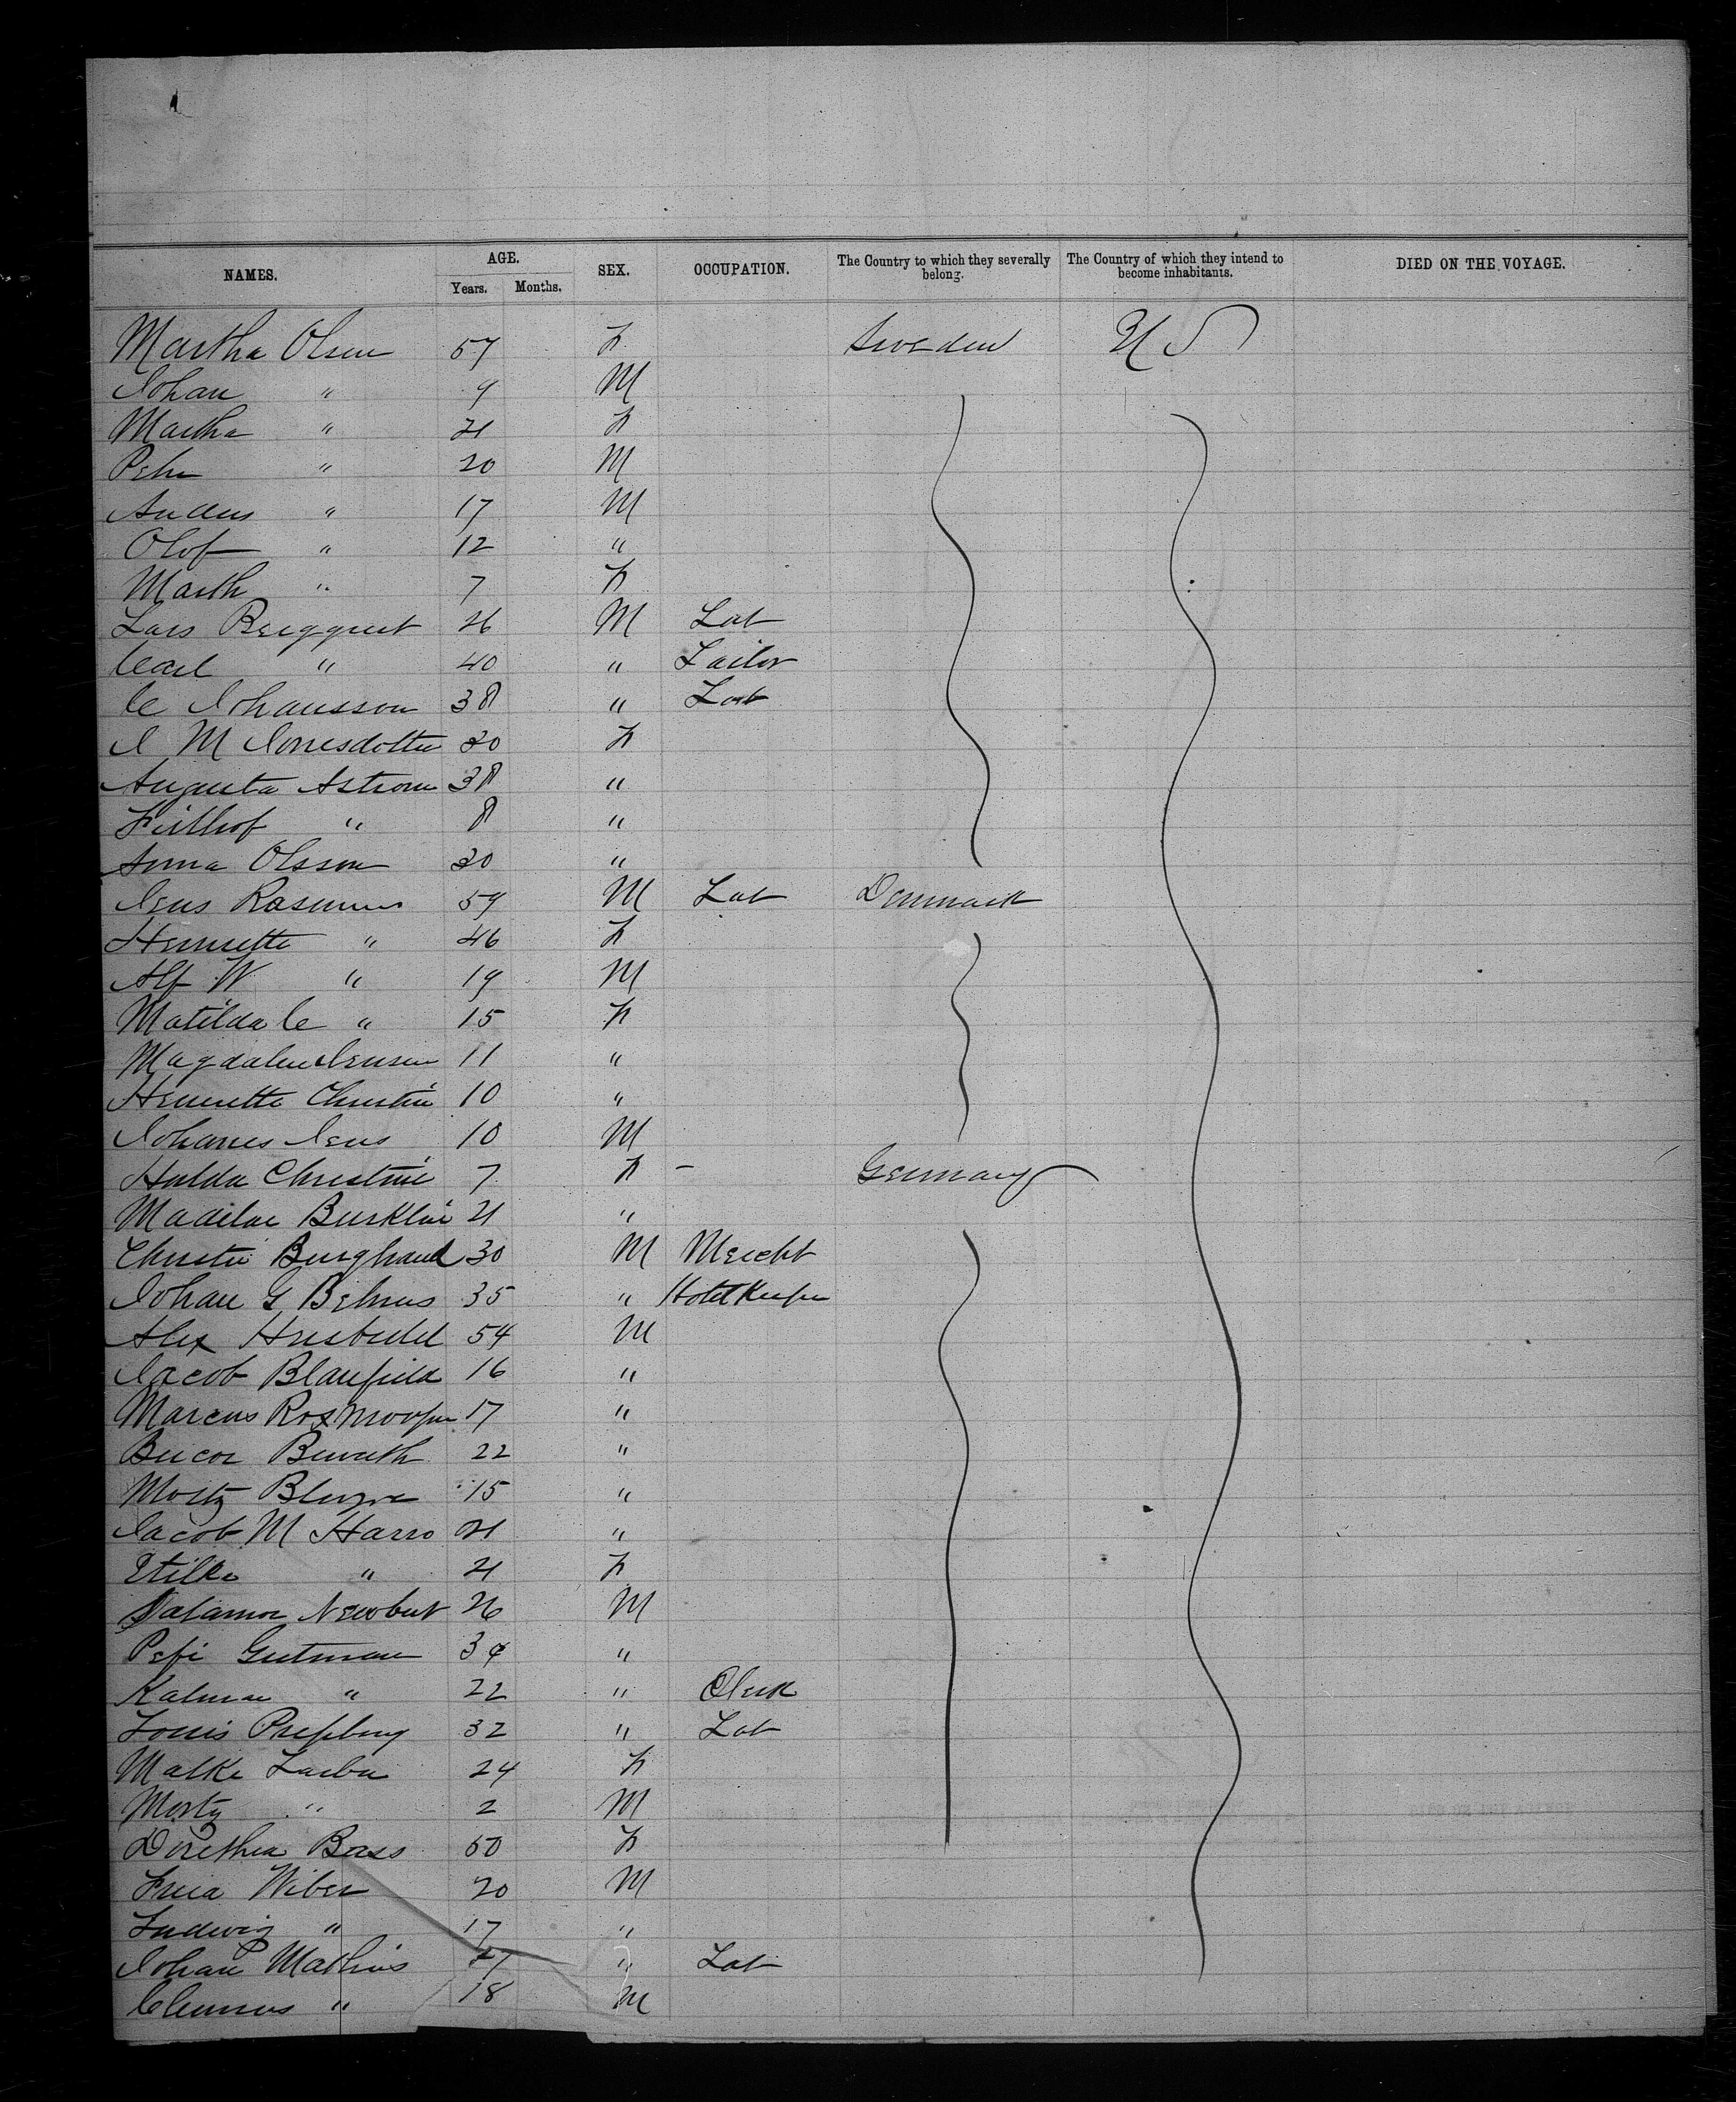 NAMES. AGE. SEX. OCCUPATION. The Country to which they severally belong. The Country of which they intend to become inhabitants. DIED ON THE VOYAGE.
Years. Months.
Martha Olsen 57 F Sweden U S
Johan " 9 M
Martha " 21 F
Pehr " 20 M
Anders " 17 M
Olof " 12 "
Marth " 7 F
Lars Bergquist 26 M Lab
Carl " 40 " Tailor
C Johansson 38 " Lab
J M Jonesdotter 30 F
Augusta Astrom 38 "
Frithof " 8 "
Anna Olsson 30 "
Jens Rasmus 59 M Lab Denmark
Henriette " 46 F
Alf W " 19 M
Matilda C " 15 F
Magdalene Jensen 11 "
Henriette Christine 10 "
Johanes Jens 10 M
Hulda Christine 7 F - Germany
Burklin 21 "
Christie Burghard 30 M Mercht
Johan G Behrens 35 " Hotel Keeper
Alex 54 M
Jacob Blaufield 16 "
Marcus 17 "
22 "
Moritz 15 "
Jacob M Harro 21 "
Etilke " 21 F
Salamon 26 M
Pepi Gutman 34 "
Kalman " 22 " Clerk
Louis Pressburg 32 " Lab
Malke 24 F
Moritz " 2 M
Dorethea Bass 50 F
Wiber 20 M
Ludwig " 17 "
Johan Mathius 27 " Lab
Clemens " 18 M